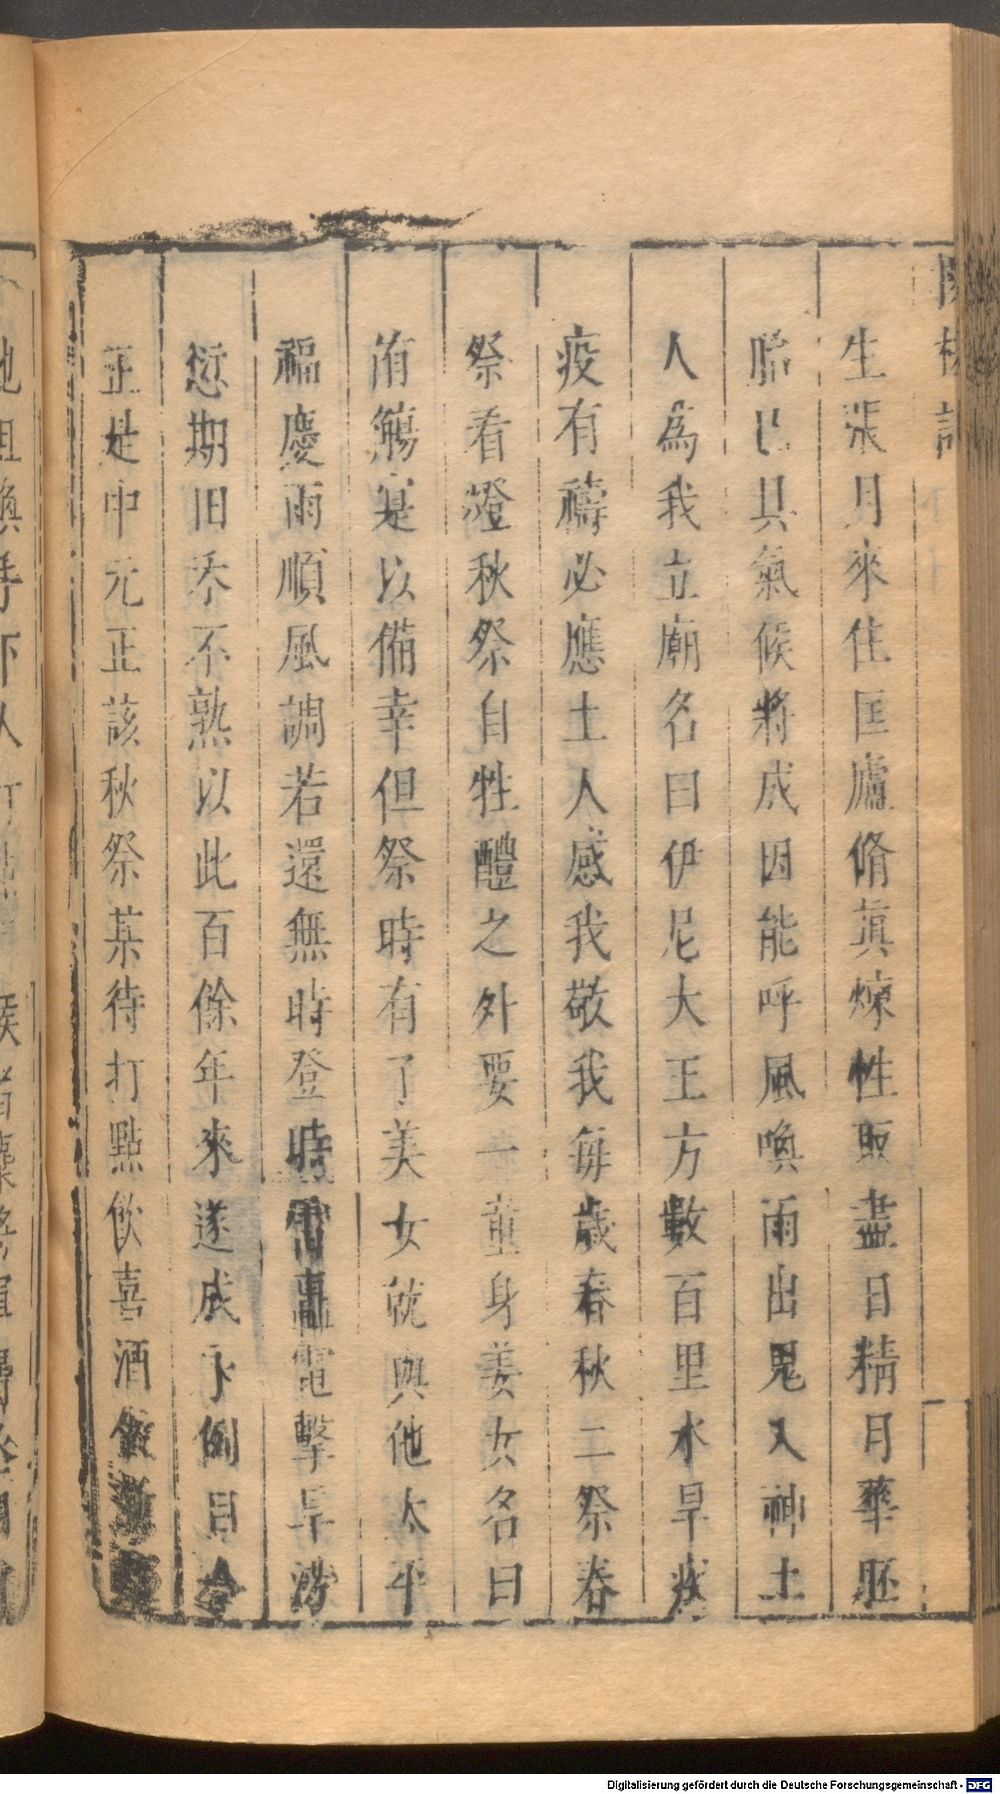 生張月來住匡廬脩真煉性取盡日精月華胚
胎已具氣候將成因能呼風喚雨出鬼入神土
人為我立廟名曰伊尼大王方數百里水旱疾
疫有禱必應土人感我敬我每歲春秋二祭春
祭看燈秋祭自牲醴之外要一童身美女名曰
侑觴寔以備幸但祭時有了美女就與他太平
福慶雨順風調若還無時登時雷轟電擊旱澇
愆期田禾不熟以此百餘年來遂成永例目今
正是中元正該秋祭某待打點飲喜酒做新
Digitalisierung gefördert durch die Deutsche Forschungsgemeinschaft - DFG